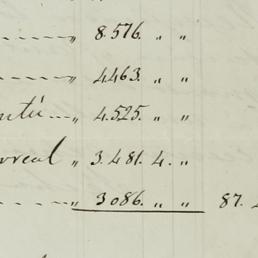 ---- „ 8.576. „ „
---- „ 4463. „ „
--- „ 4.525. „ „
rreal „ 3.481. 4. „
---- „ 3086. „ „ 87.